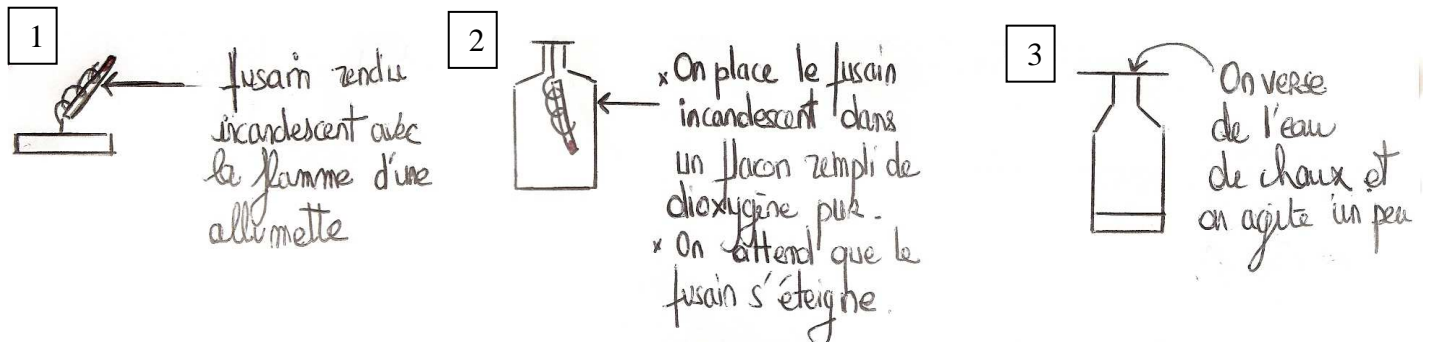 1
fusain rendu
incandescent avec
la flamme d'une
allumette
2
× On place le fusain
incandescent dans
un flacon rempli de
dioxygène pur.
× On attend que le
fusain s'éteigne.
3
On verse
de l'eau
de chaux et
on agite un peu